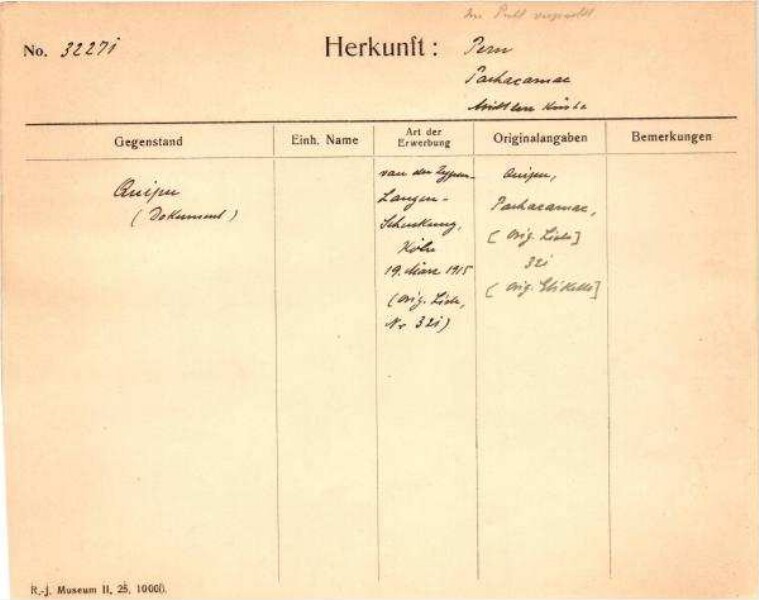 No. 3227i
Herkunft: Peru
Pachacamac
Mittlere Küste
Gegenstand
Einh. Name
Art der
Erwerbung
Originalangaben
Bemerkungen
Quipu
(Dokument)
van der Zypen-
Langen-
Schenkung,
Köln
19. März 1915
(Orig. Liste,
Nr 32i)
Quipu,
Pachacamac,
[Orig. Liste]
32i
[Orig. Etikette]
R.-J. Museum II, 25, 10000.